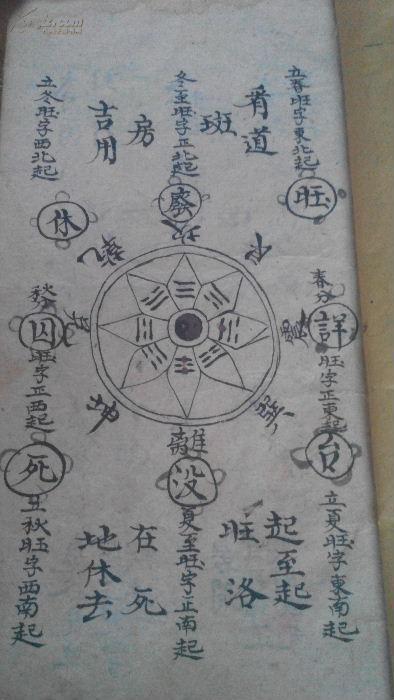 立春旺字東北起
旺
道
班
冬至旺字正北起
廢
房
吉用
立冬旺字西北起
休
坎
艮
乾
春分
詳
旺字正東起
震
秋
囚
旺字正西起
兌
巽
坤
離
台
立夏旺字東南起
起至起
旺洛
没
夏至旺字正南起
在死
地休去
死
立秋旺字西南起